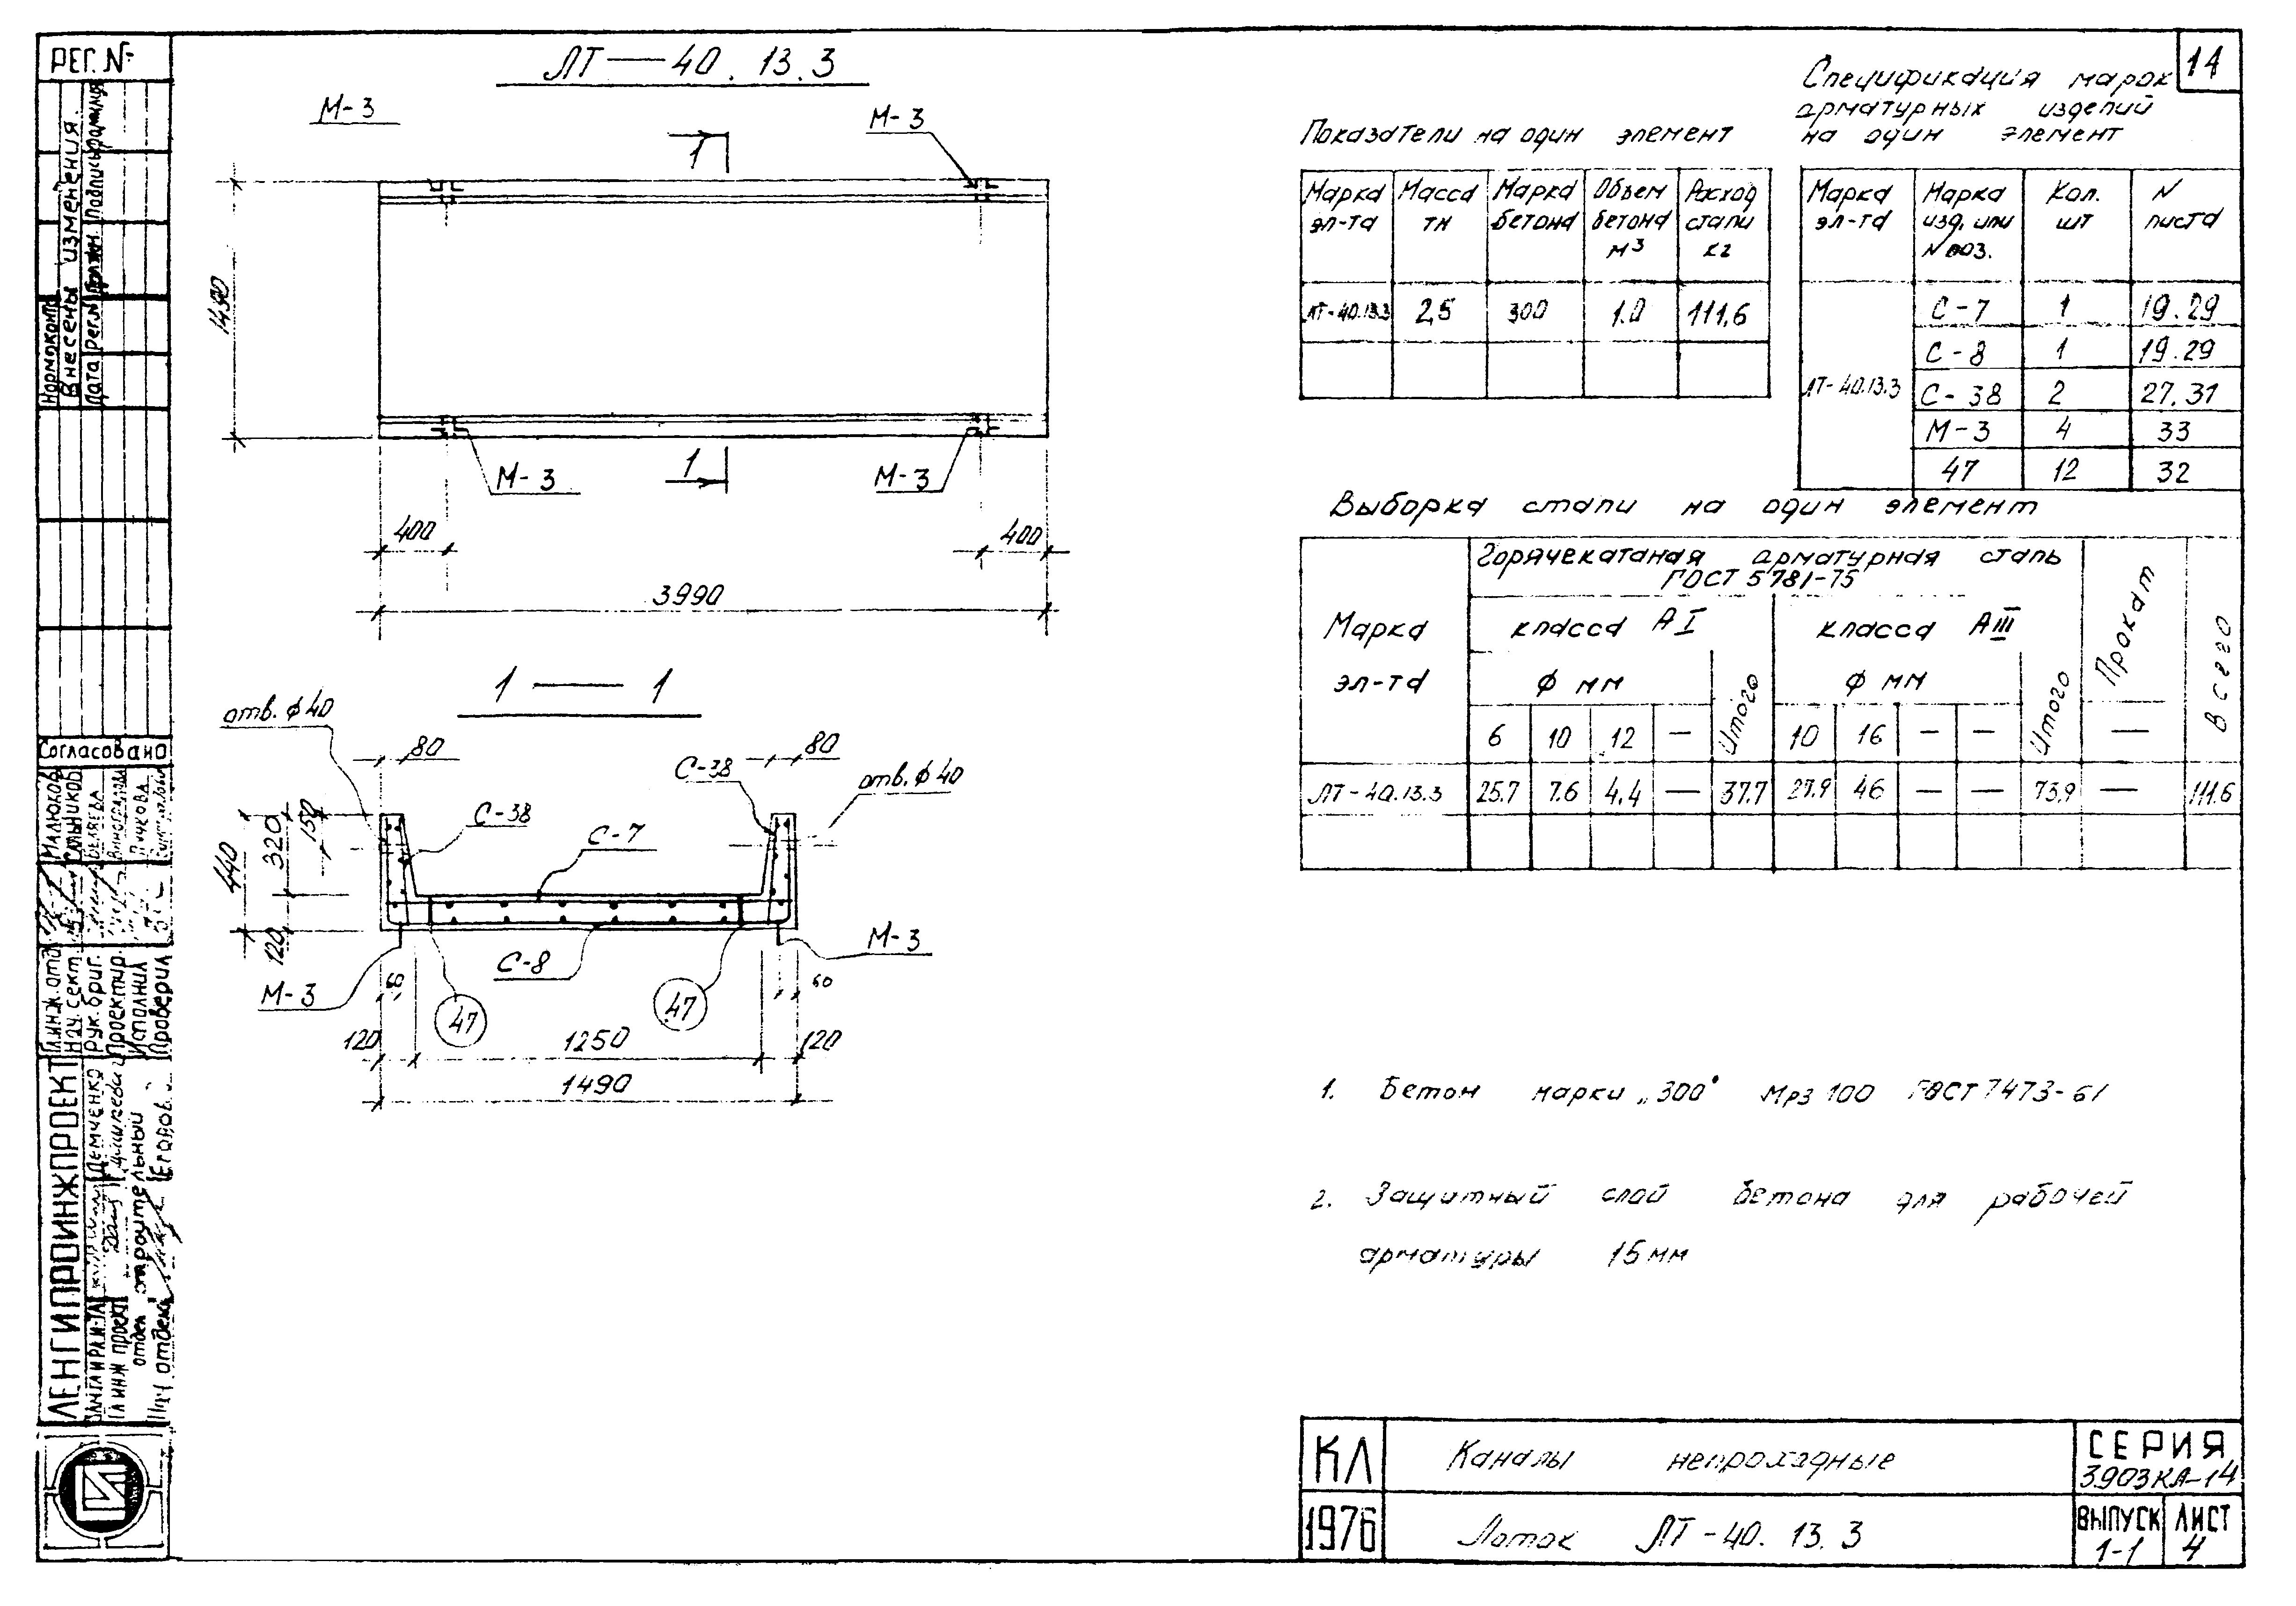 РЕГ. №
14
ЛТ — 40. 13. 3
М-3
М-3
1
М-3
М-3
1
1490
400
400
3990
1 — 1
отв. ϕ40
80
80
С-38
отв. ϕ40
С-38
С-7
150
320
440
120
С-8
М-3
М-3
60
60
47
47
120
1250
120
1490
Показатели на один элемент
Марка эл-та
Масса тн
Марка бетона
Объем бетона м³
Расход стали кг
ЛТ-40.13.3 2,5 300 1.0 111,6
Спецификация марок
арматурных изделий
на один элемент
Марка эл-та
Марка изд. или N поз.
Кол. шт
N листа
ЛТ-40.13.3
С-7 1 19.29
С-8 1 19.29
С-38 2 27.31
М-3 4 33
47 12 32
Выборка стали на один элемент
Марка эл-та
Горячекатаная арматурная сталь
ГОСТ 5781-75
класса АI
класса АIII
ϕ мм
ϕ мм
Итого
Итого
Прокат
Всего
6 10 12 — 10 16 — — —
ЛТ-40.13.3 25.7 7.6 4.4 — 37.7 27.9 46 — — 73.9 — 111.6
1. Бетон марки „300" Мрз 100 ГОСТ 7473-61
2. Защитный слой бетона для рабочей
арматуры 15 мм
КЛ
Каналы непроходные
СЕРИЯ
3.903 КЛ-14
1976
Лоток ЛТ-40. 13. 3
ВЫПУСК
1-1
ЛИСТ
4
Нормоконтр
Внесены изменения
Дата
рег.N
Должн.
Подпись
Фамилия
Согласовано
Гл.инж.отд.
Малюков
Нач. сект.
Рук. бриг.
Беляева
Проектир.
Исполнил
Проверил
ЛЕНГИПРОИНЖПРОЕКТ
Демченко
Гл инж проект
отдел строительный
Нач отдела
Егоров